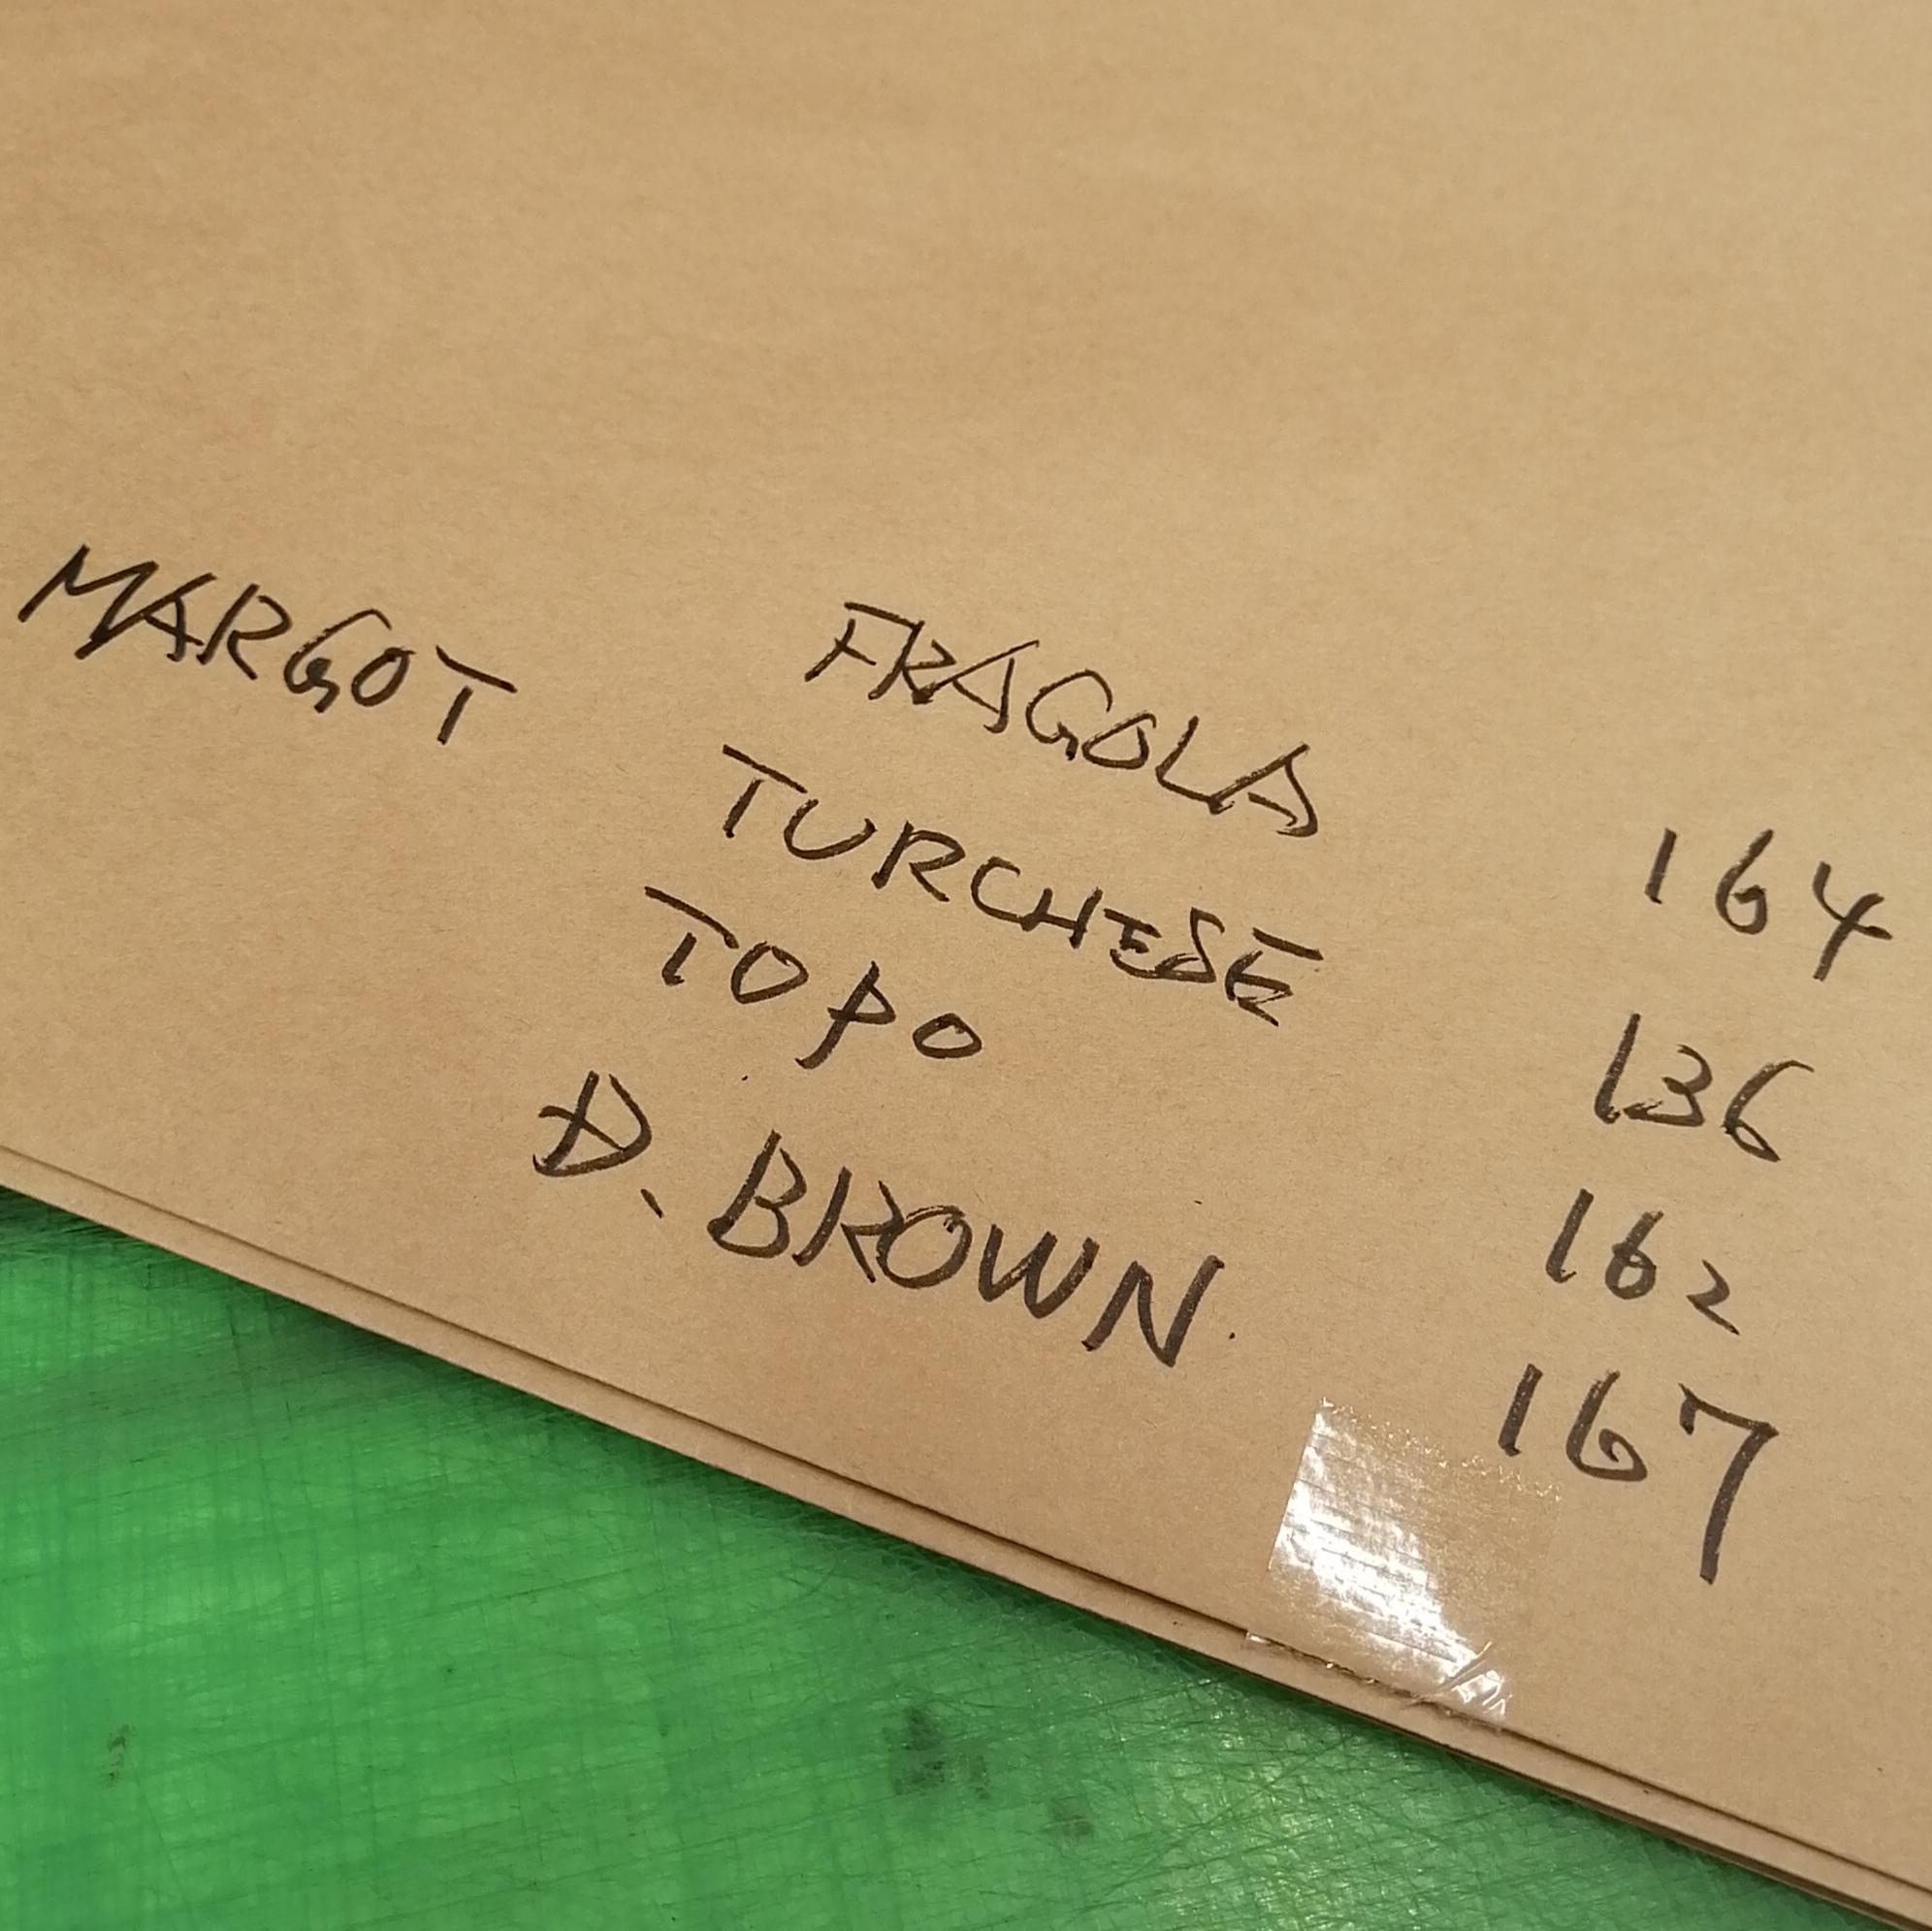 MARGOT FRAGOLA 164
TURCHESE 136
TOPO 162
D. BROWN 167